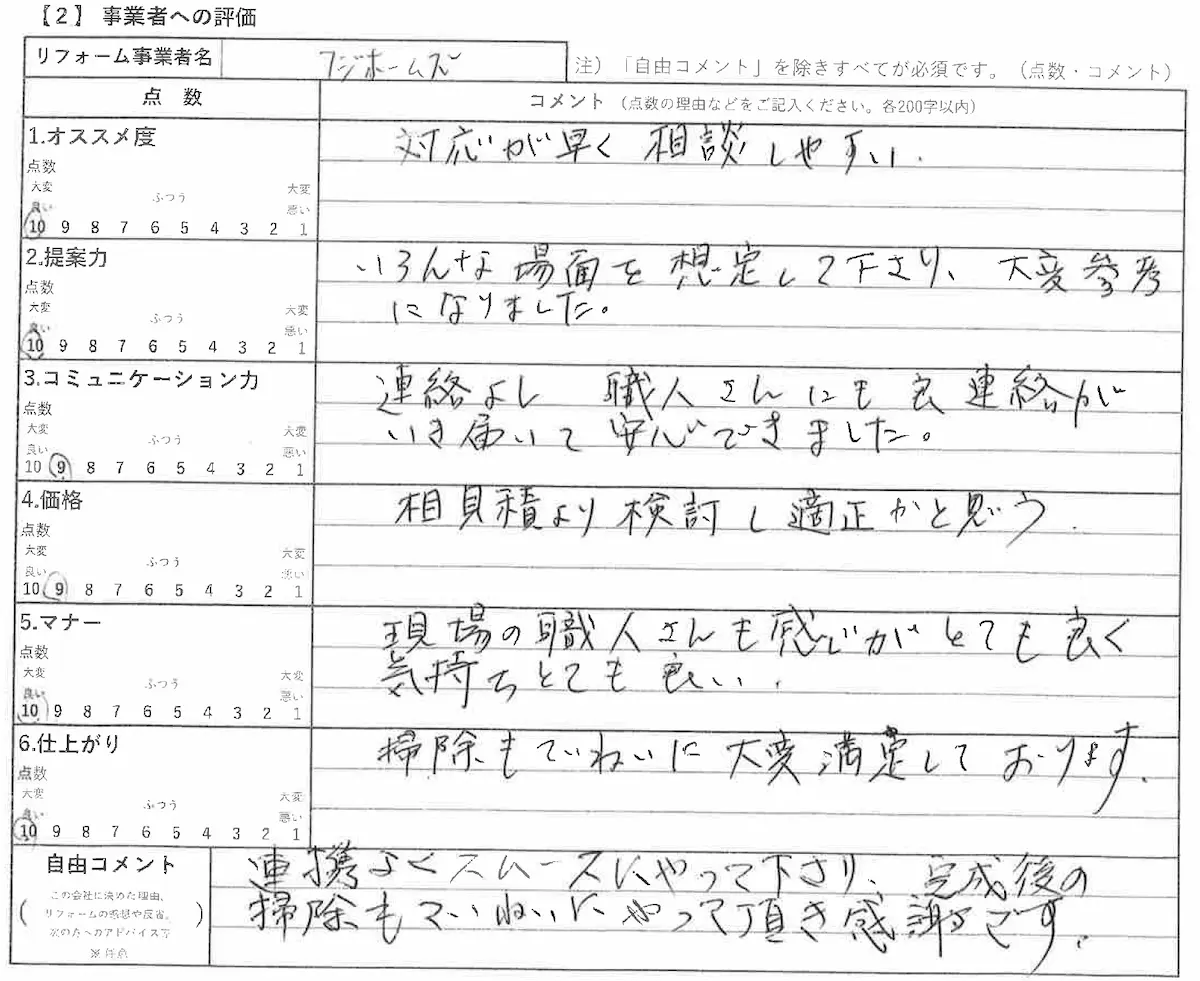 【2】 事業者への評価
リフォーム事業者名 フジホームズ
注）「自由コメント」を除きすべてが必須です。（点数・コメント）
点 数 コメント （点数の理由などをご記入ください。各200字以内）
1.オススメ度
点数
大変 良い ふつう 大変 悪い
10 9 8 7 6 5 4 3 2 1
対応が早く 相談しやすい.
2.提案力
点数
大変 良い ふつう 大変 悪い
10 9 8 7 6 5 4 3 2 1
いろんな場面を想定して下さり、大変参考
になりました。
3.コミュニケーション力
点数
大変 良い ふつう 大変 悪い
10 9 8 7 6 5 4 3 2 1
連絡よし 職人さんにも良連絡が
いき届いて安心できました。
4.価格
点数
大変 良い ふつう 大変 悪い
10 9 8 7 6 5 4 3 2 1
相見積より検討し適正かと思う.
5.マナー
点数
大変 良い ふつう 大変 悪い
10 9 8 7 6 5 4 3 2 1
現場の職人さんも感じがとても良く
気持ちとても良い.
6.仕上がり
点数
大変 良い ふつう 大変 悪い
10 9 8 7 6 5 4 3 2 1
掃除もていねいに大変満足しております.
自由コメント
この会社に決めた理由、
リフォームの感想や反省、
次の方へのアドバイス等
※任意
連携よくスムースにやって下さり、完成後の
掃除もていねいにやって頂き感謝です.